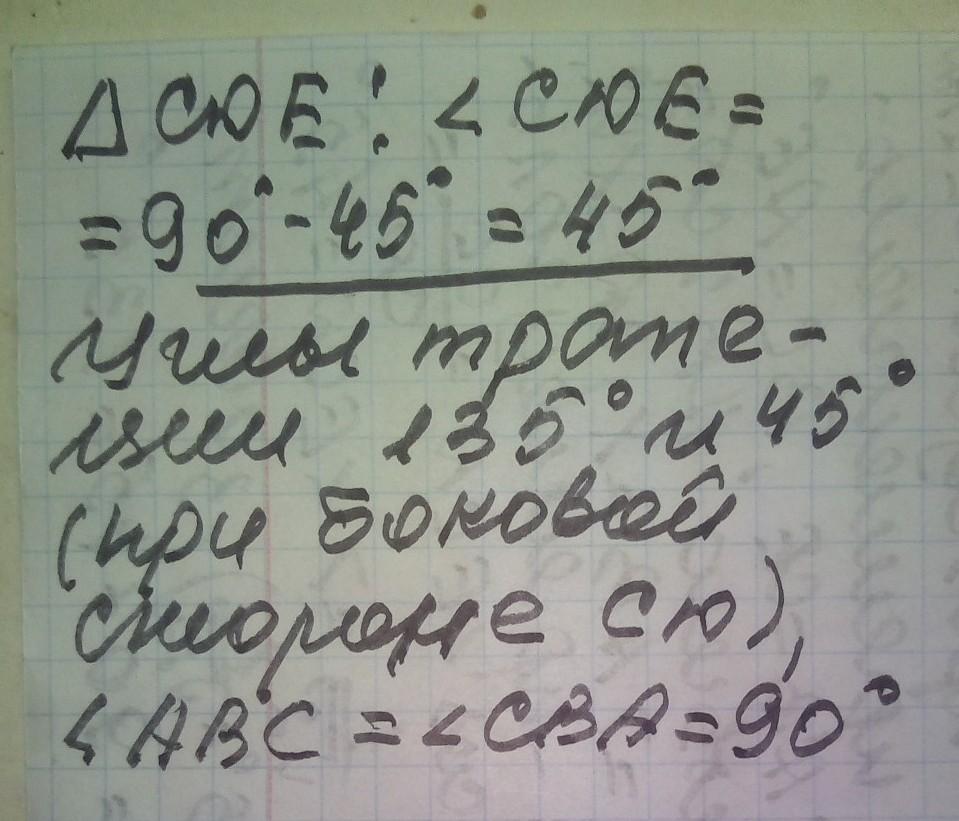 Δ СЮЕ: < СЮЕ =
= 90° - 45° = 45°
Углы трапе-
ции 135° и 45°
(при боковой
стороне СЮ),
< АВС = < СВА = 90°